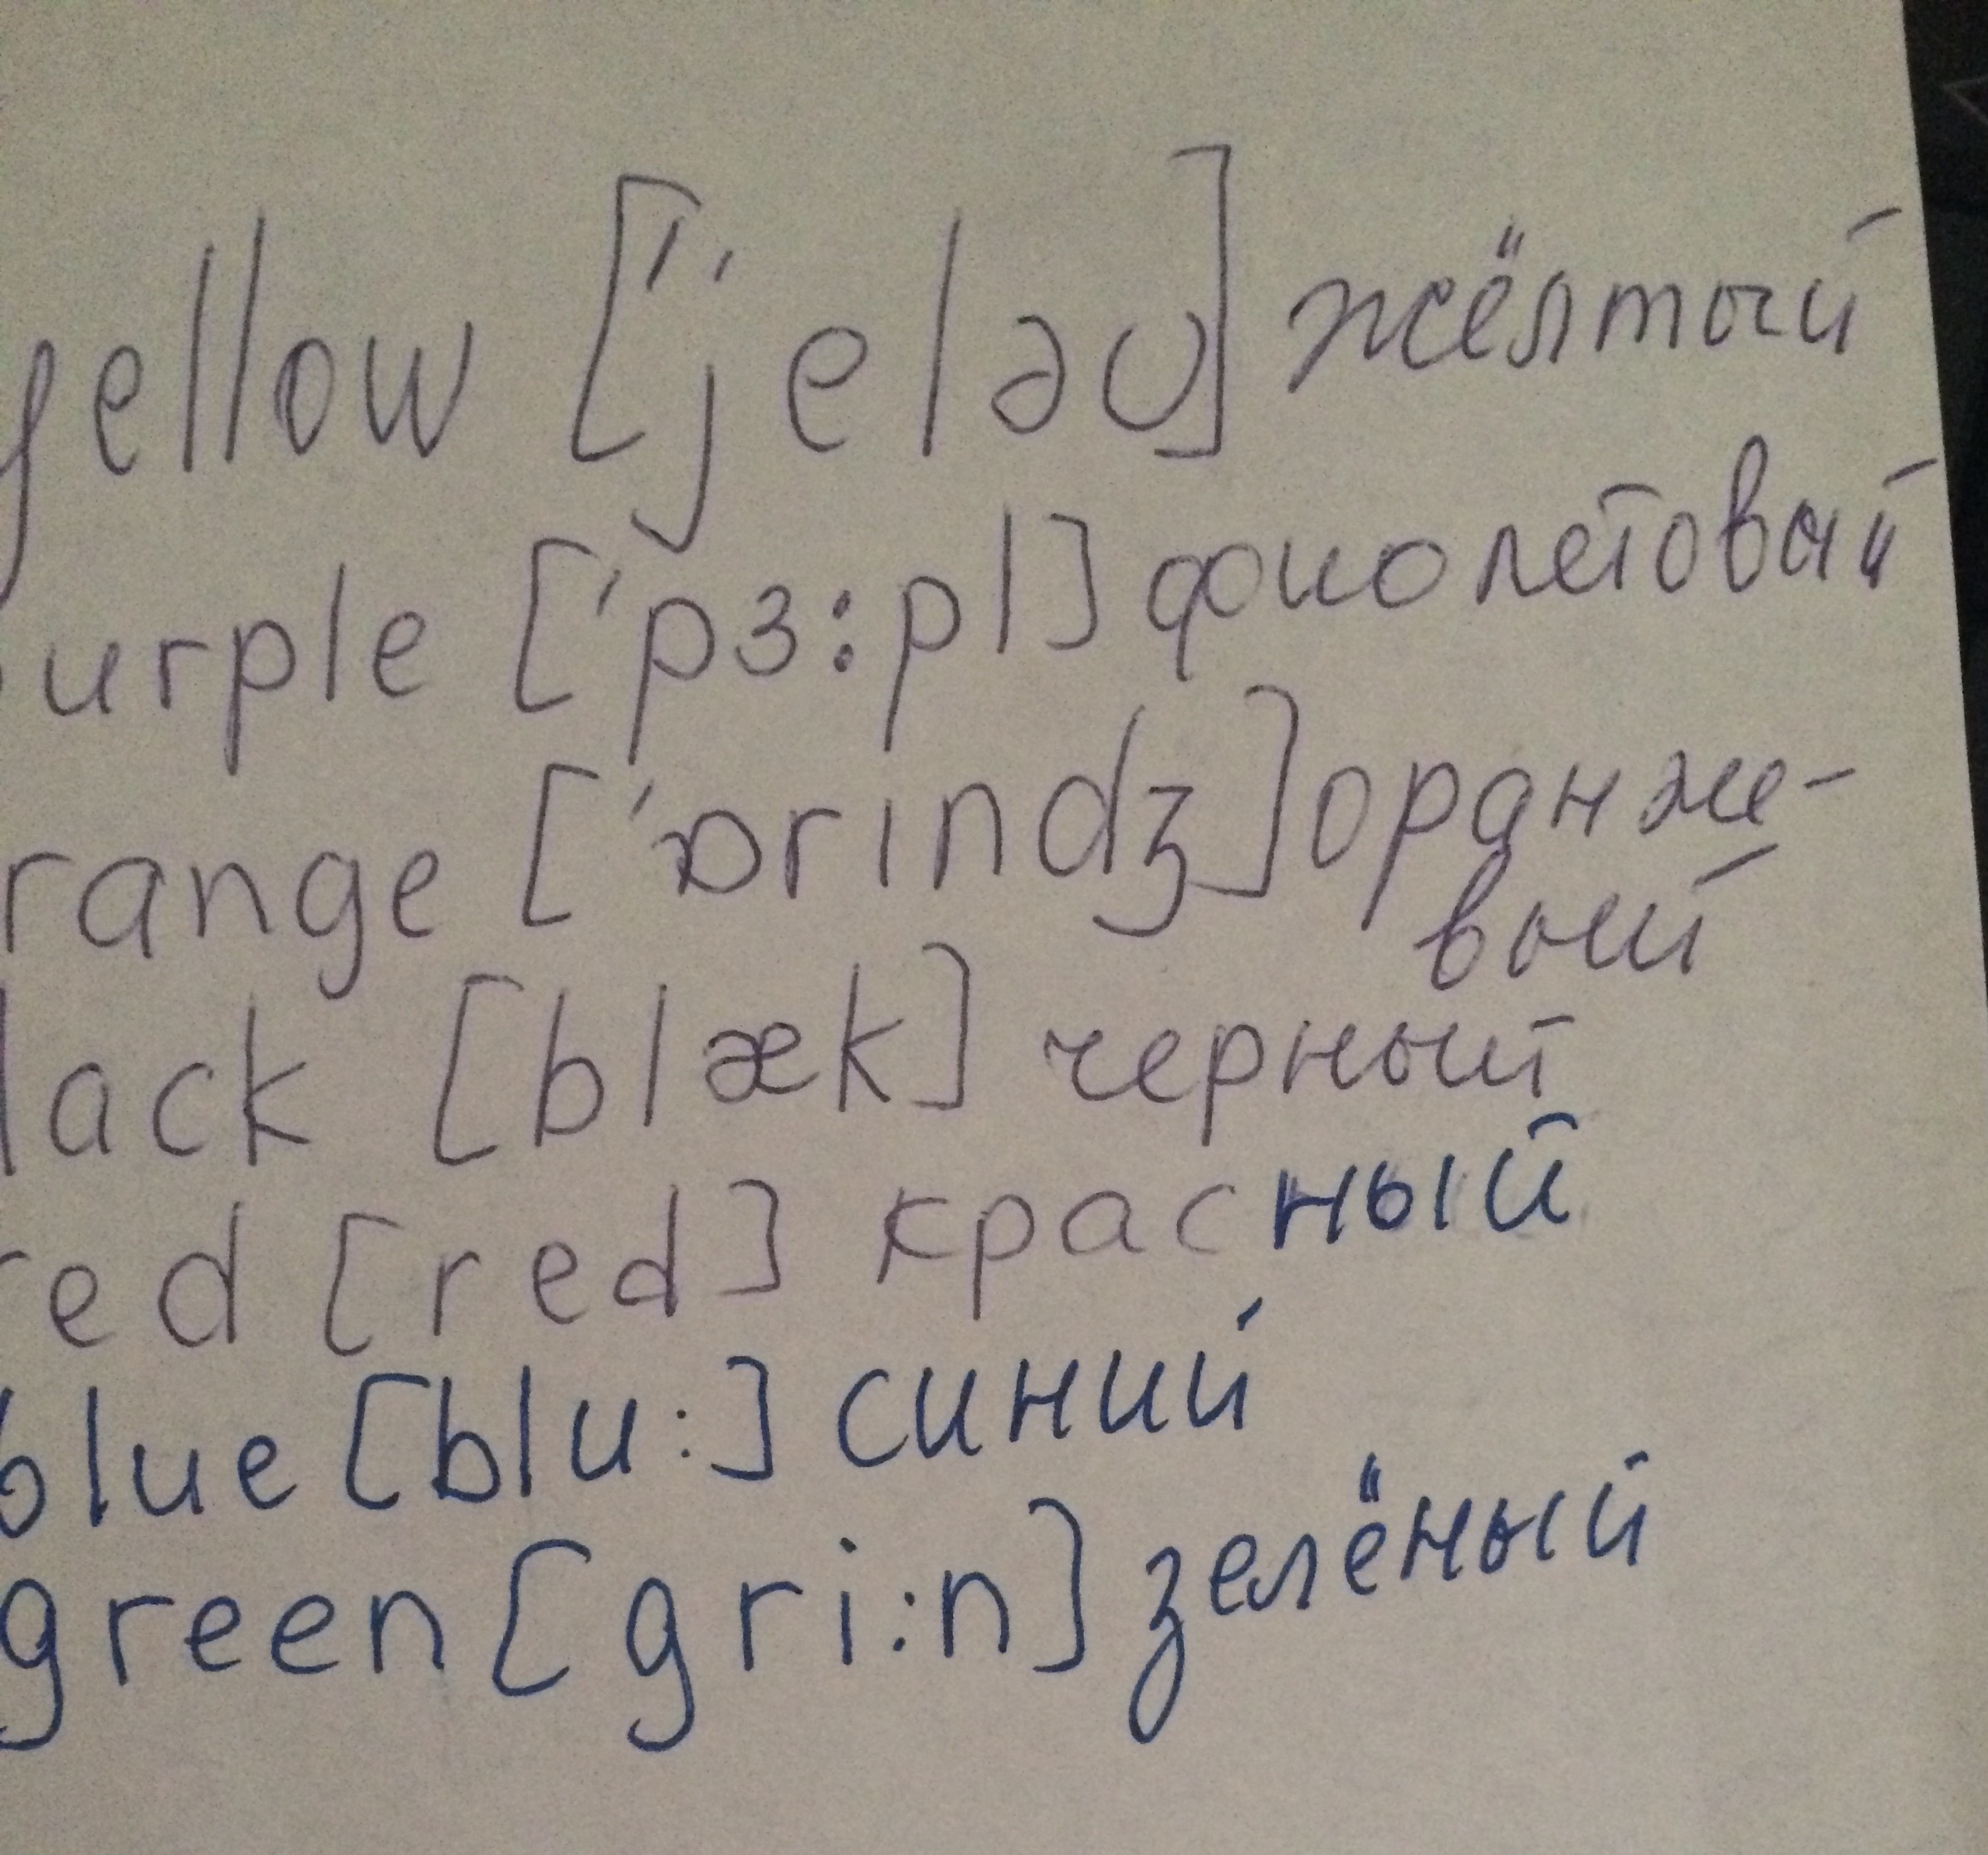 yellow ['jeləʊ] жёлтый
urple ['pɜ:pl] фиолетовый
range ['ɒrindʒ] оранже-
вый
lack [blæk] черный
red [red] красный
blue [blu:] синий
green [gri:n] зелёный